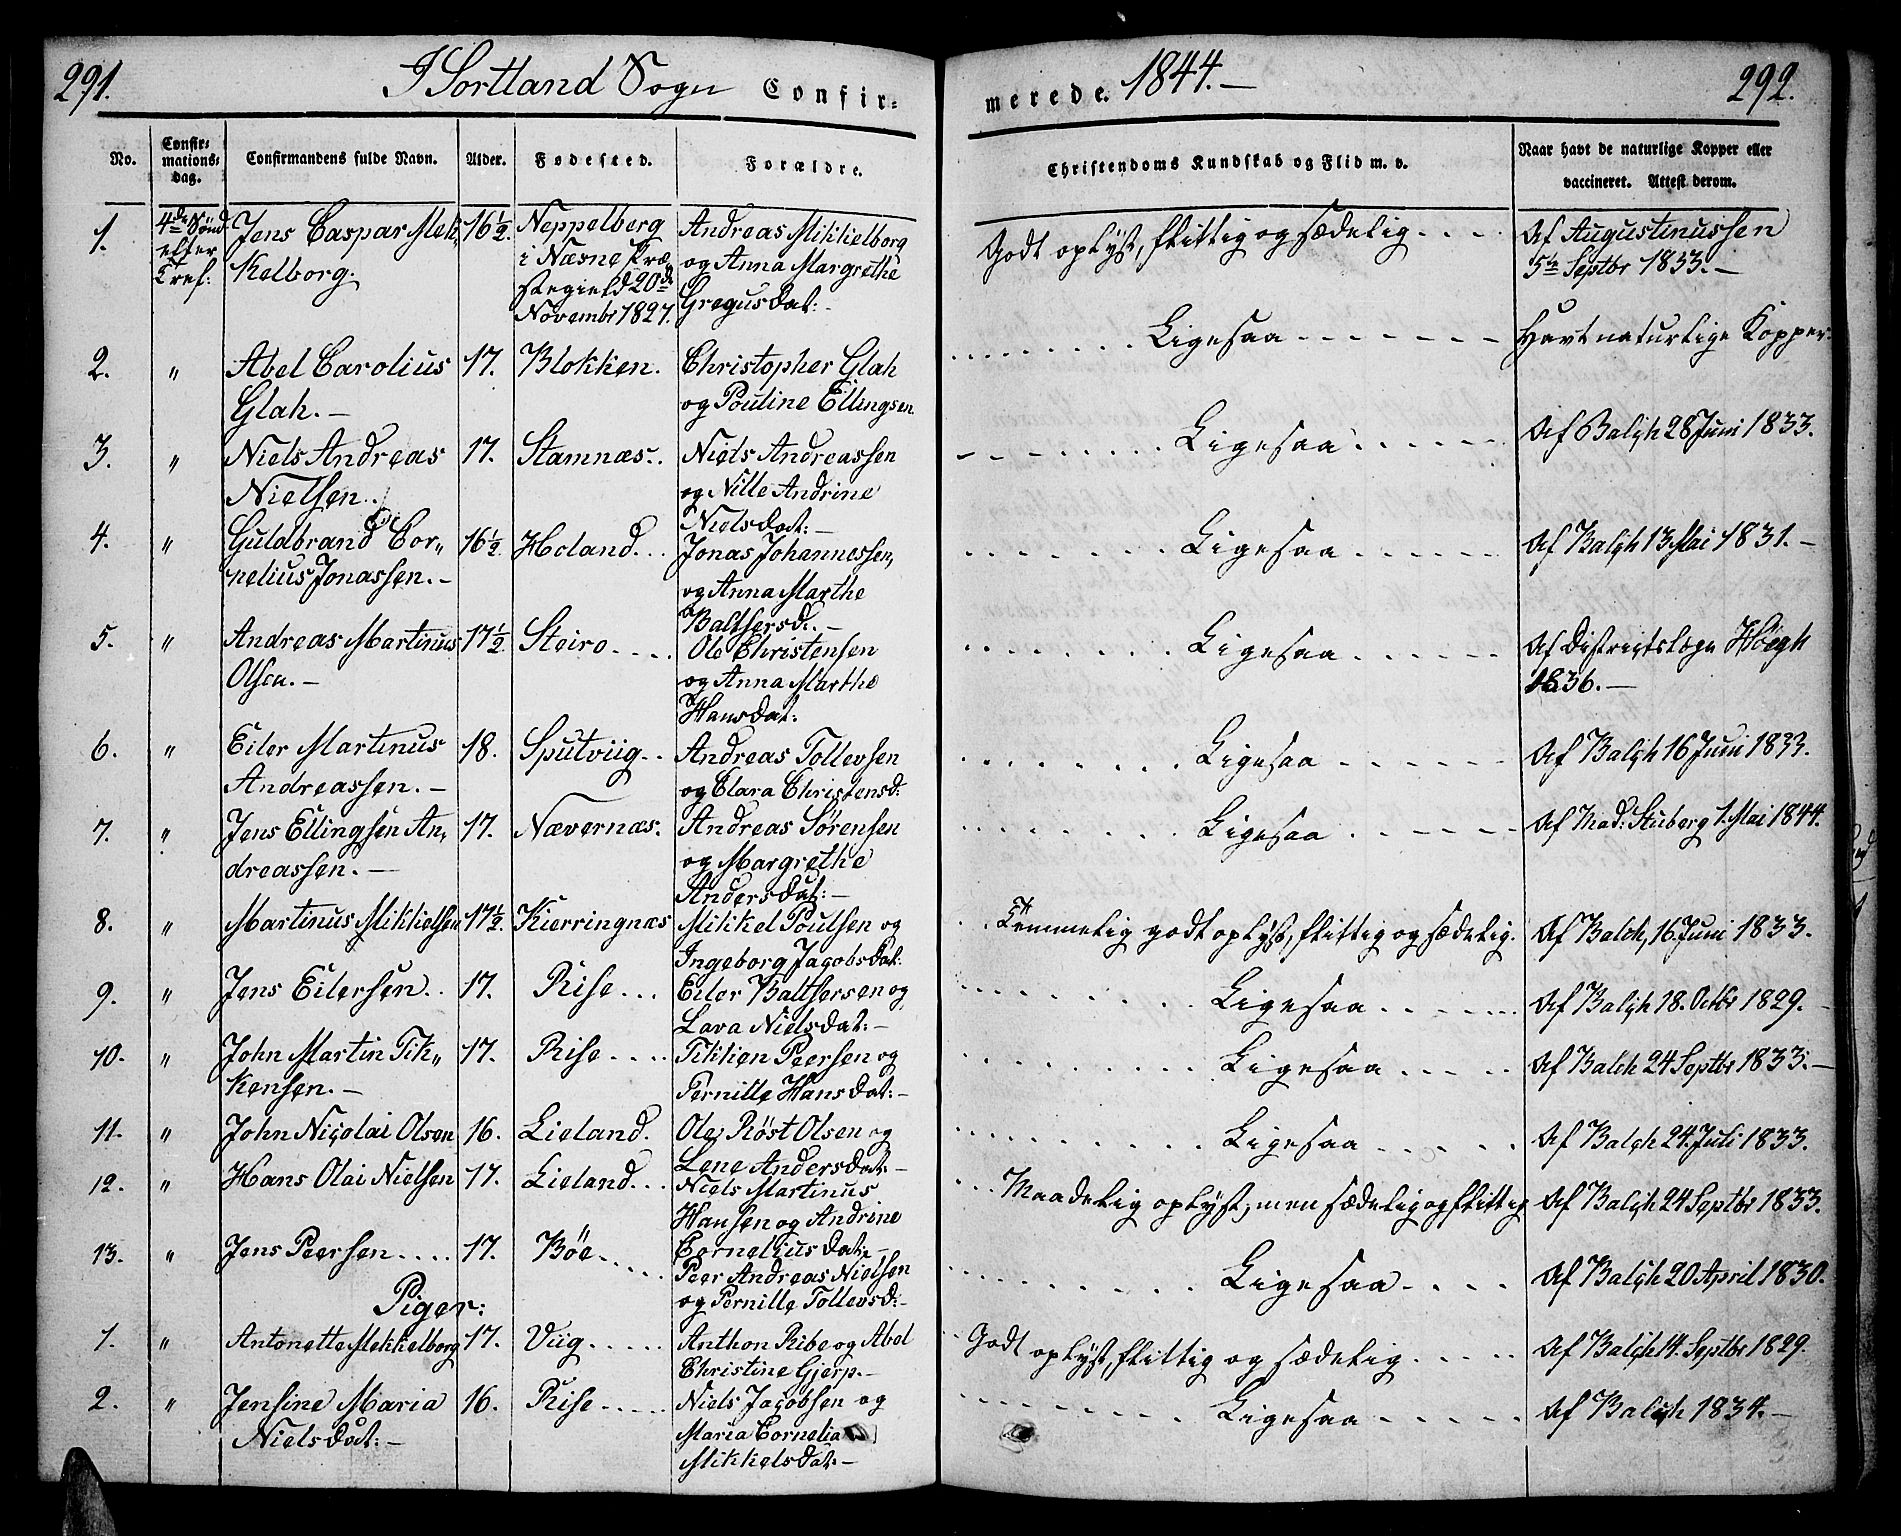 291.
I Sortland Sogn Confir=
No.
Confir=
mations=
dag.
Confirmandens fulde Navn.
Alder.
Fodested.
Forældre.
1.
4de Sönd
efter
Tref:
Jens Caspar Mek
kelborg.
16 1/2.
Neppelberg
i Næsne Præ
stegield 20de
Novembr 1827.
Andreas Mikkelborg
og Anna Margrethe
Gregusdat:-
2.
"
Abel Carolius
Glah.-
17.
Blokken.
Christopher Glah
og Pouline Ellingsen
3.
"
Niels Andreas
Nielsen.
17.
Stamnæs..
Niels Andreassen
og Nille Andrine
Nielsdat:-
4.
"
Guldbrand Cor„
nelius Jonassen.-
16 1/2
Holand...
Jonas Johannessen,
og Anna Marthe
Baltsersd:-
5.
"
Andreas Martinus
Olsen.-
17 1/2
Steiro....
Ole Christensen
og Anna Marthe
Hansdat:
6.
"
Eiler Martinus
Andreassen.-
18.
Sputviig..
Andreas Tollevsen
og Clara Christensd:
7.
"
Jens Ellingsen An„
dreassen.-
17.
Nævernæs.
Andreas Sørensen
og Margrethe
Andersdat:-
8.
"
Martinus Mikkelsen
17 1/2.
Kierringnæs
Mikkel Poulsen og
Ingeborg Jacobsdat:
9.
"
Jens Eilersen..
17.
Rise...
Eiler Baltsersen og
Lava Nielsdat:-
10.
"
John Martin Tik„
kensen.-
17.
Rise....
Tikken Peersen og
Pernille Hansdat:-
11.
"
John Nicolai Olsen
16.
Lieland.
Ole Röst Olsen og
Lene Andersdat:-
12.
"
Hans Olai Nielsen
17.
Lieland...
Niels Martinus
Hansen og Andrine
Corneliusdat:-
13.
"
Jens Peersen....
17.
Böe.....
Peer Andreas Nielsen
og Pernille Tollevsd:-
Piger:
1.
"
Antonette Mekkelborg
17.
Viig.....
Anthon Ribe og Abel
Christine Gjerp.-
2.
"
Jensine Maria
Nielsdat:-
16.
Rise.....
Niels Jacobsen og
Maria Cornelia
Mikkelsdat:-
merede. 1844.-
292.
Christendoms Kundskab og Flid m. v.
Naar havt de naturlige Kopper eller
vaccineret. Attest derom.
Godt oplyst, flittig og sædelig....
Af Augustinussen
5te Septbr 1833.-
Ligesaa
Havt naturlige Kopper.
Ligesaa
Af Balch 28 Juni 1833.
Ligesaa
Af Balch 13 Mai 1831.-
Ligesaa
Af Districtslæge Höegh
1836.-
Ligesaa
Af Balch 16 Juni 1833.
Ligesaa
Af Mad: Stuberg 1. Mai 1844.
Temmelig godt oplyst, flittig og sædelig.
Af Balch, 16 Juni 1833.
Ligesaa
Af Balch 18. Octbr 1829.-
Ligesaa
Af Balch 24 Septbr 1833.-
Ligesaa
Af Balch 24. Juli 1833.
Maadelig oplyst, men sædelig og flittig
Af Balch 24 Septbr 1833.
Ligesaa
Af Balch 20 April 1830.
Godt oplyst, flittig og sædelig....
Af Balch 14. Septbr 1829.
Ligesaa
Af Balch 1834.-